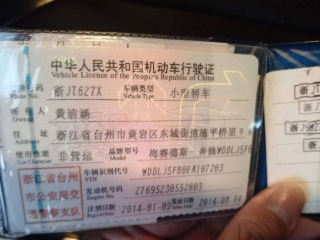 中华人民共和国机动车行驶证
Vehicle License of the People's Republic of China
号牌号码 浙JT627X 车辆类型 小型轿车
Vehicle Type
所有人 黄洁涵
住址 浙江省台州市黄岩区东城街道
使用性质 非营运 品牌型号 梅赛德斯-奔驰WDDLJ5F
浙江省台州
市公安局交
通警察支队
车辆识别代号 WDDLJ5FB0EA107203
VIN
发动机号码 27695230552603
注册日期 2014-01-09 发证日期